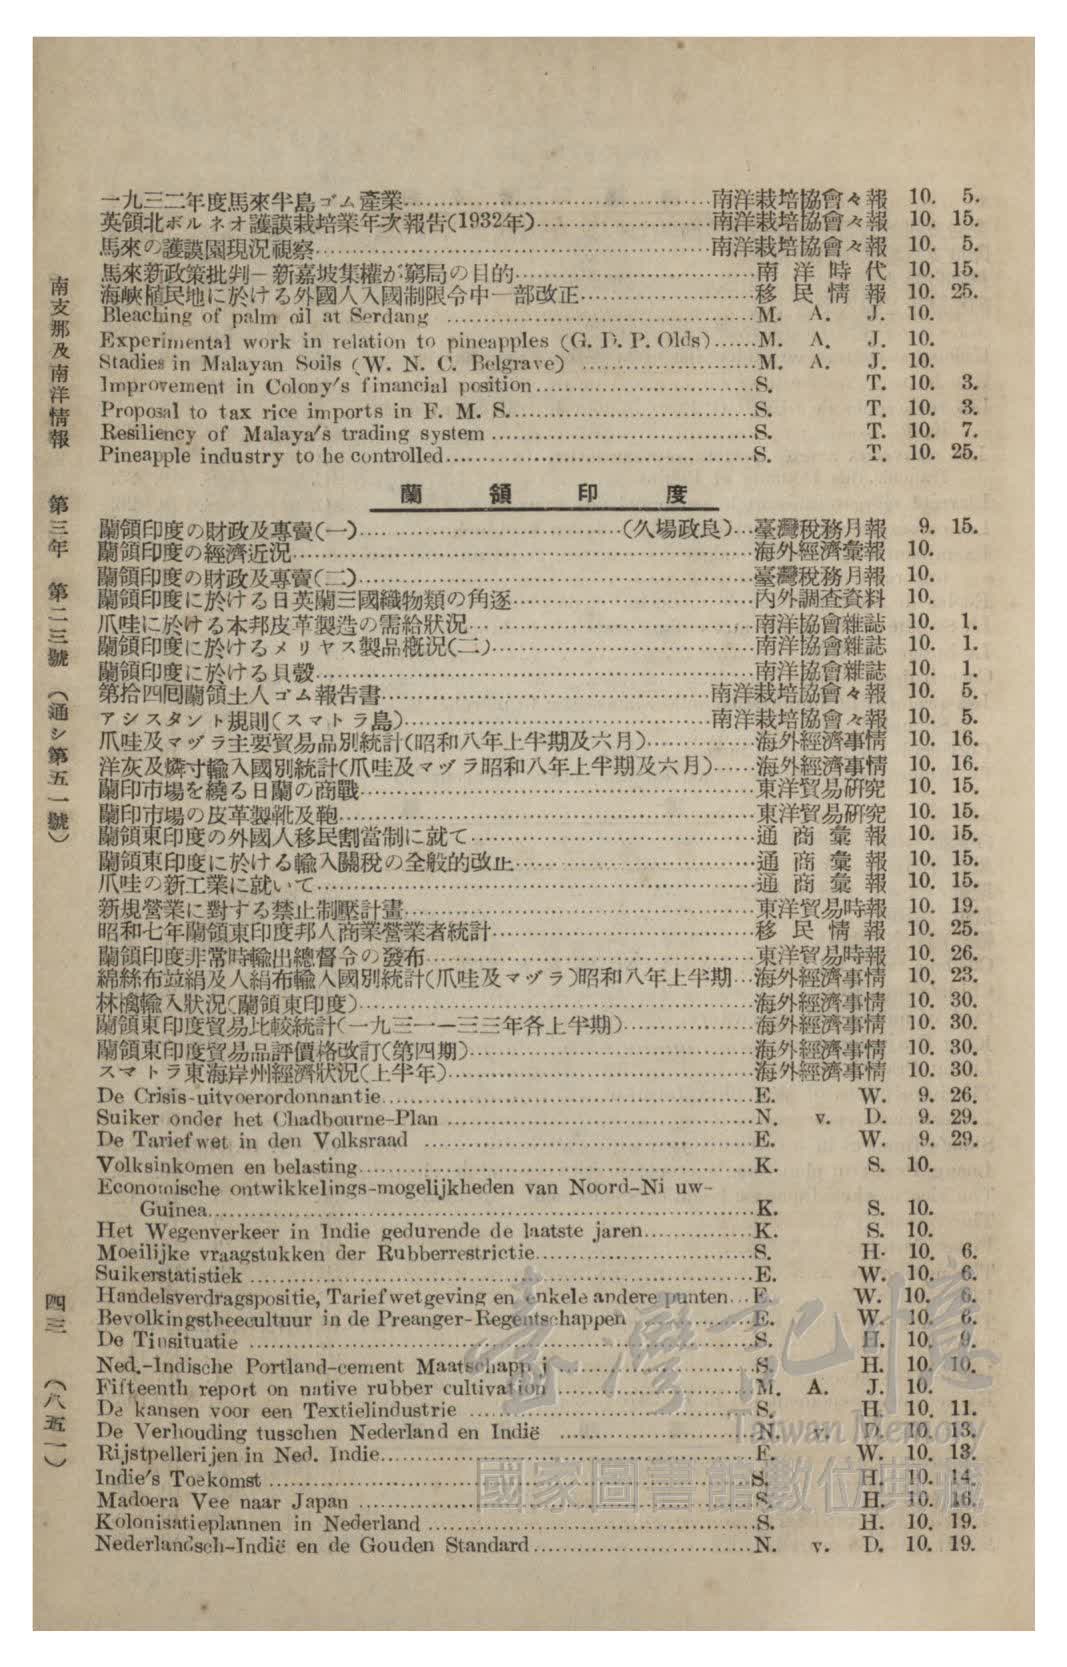 一九三二年度馬來半島ゴム產業……南洋栽培協會々報 10. 5.
英領北ボルネオ護謨栽培業年次報告(1932年)……南洋栽培協會々報 10. 15.
馬來の護謨園現況視察……南洋栽培協會々報 10. 5.
馬來新政策批判－新嘉坡集權が窮局の目的……南洋時代 10. 15.
海峽植民地に於ける外國人入國制限令中一部改正……移民情報 10. 25.
Bleaching of palm oil at Serdang ……M. A. J. 10.
Experimental work in relation to pineapples (G. D. P. Olds)……M. A. J. 10.
Stadies in Malayan Soils (W. N. C. Belgrave) ……M. A. J. 10.
Improvement in Colony's financial position……S. T. 10. 3.
Proposal to tax rice imports in F. M. S.……S. T. 10. 3.
Resiliency of Malaya's trading system……S. T. 10. 7.
Pineapple industry to be controlled……S. T. 10. 25.
蘭領印度
蘭領印度の財政及專賣(一)……(久場政良)…臺灣稅務月報 9. 15.
蘭領印度の經濟近況……海外經濟彙報 10.
蘭領印度の財政及專賣(二)……臺灣稅務月報 10.
蘭領印度に於ける日英蘭三國織物類の角逐……內外調查資料 10.
爪哇に於ける本邦皮革製造の需給狀況……南洋協會雜誌 10. 1.
蘭領印度に於けるメリヤス製品槪況(二)……南洋協會雜誌 10. 1.
蘭領印度に於ける貝殼……南洋協會雜誌 10. 1.
第拾四囘蘭領土人ゴム報告書……南洋栽培協會々報 10. 5.
アシスタント規則(スマトラ島)……南洋栽培協會々報 10. 5.
爪哇及マヅラ主要貿易品別統計(昭和八年上半期及六月)……海外經濟事情 10. 16.
洋灰及燐寸輸入國別統計(爪哇及マヅラ昭和八年上半期及六月)……海外經濟事情 10. 16.
蘭印市場を繞る日蘭の商戰……東洋貿易硏究 10. 15.
蘭印市場の皮革製靴及鞄……東洋貿易硏究 10. 15.
蘭領東印度の外國人移民割當制に就て……通商彙報 10. 15.
蘭領東印度に於ける輸入關稅の全般的改正……通商彙報 10. 15.
爪哇の新工業に就いて……通商彙報 10. 15.
新規營業に對する禁止制壓計畫……東洋貿易時報 10. 19.
昭和七年蘭領東印度邦人商業營業者統計……移民情報 10. 25.
蘭領印度非常時輸出總督令の發布……東洋貿易時報 10. 26.
綿絲布竝絹及人絹布輸入國別統計(爪哇及マヅラ)昭和八年上半期…海外經濟事情 10. 23.
林檎輸入狀況(蘭領東印度)……海外經濟事情 10. 30.
蘭領東印度貿易比較統計(一九三一－三三年各上半期)……海外經濟事情 10. 30.
蘭領東印度貿易品評價格改訂(第四期)……海外經濟事情 10. 30.
スマトラ東海岸州經濟狀況(上半年)……海外經濟事情 10. 30.
De Crisis-uitvoerordonnantie……E. W. 9. 26.
Suiker onder het Chadbourne-Plan……N. v. D. 9. 29.
De Tariefwet in den Volksraad ……E. W. 9. 29.
Volksinkomen en belasting……K. S. 10.
Economische ontwikkelings-mogelijkheden van Noord-Ni uw-
Guinea……K. S. 10.
Het Wegenverkeer in Indie gedurende de laatste jaren……K. S. 10.
Moeilijke vraagstukken der Rubberrestrictie……S. H. 10. 6.
Suikerstatistiek ……E. W. 10. 6.
Handelsverdragspositie, Tariefwetgeving en enkele andere punten…E. W. 10. 6.
Bevolkingstheecultuur in de Preanger-Regentschappen ……E. W. 10. 6.
De Tinsituatie ……S. H. 10. 9.
Ned.-Indische Portland-cement Maatschapp j ……S. H. 10. 10.
Fifteenth report on native rubber cultivation ……M. A. J. 10.
De kansen voor een Textielindustrie ……S. H. 10. 11.
De Verhouding tusschen Nederland en Indië ……N. v. D. 10. 13.
Rijstpellerijen in Ned. Indie……E. W. 10. 13.
Indie's Toekomst……S. H. 10. 14.
Madoera Vee naar Japan ……S. H. 10. 16.
Kolonisatieplannen in Nederland……S. H. 10. 19.
Nederlandsch-Indië en de Gouden Standard……N. v. D. 10. 19.
南支那及南洋情報 第三年 第二三號 (通シ第五一號) 四三 (八五一)
臺灣記憶
Taiwan Memory
國家圖書館數位典藏